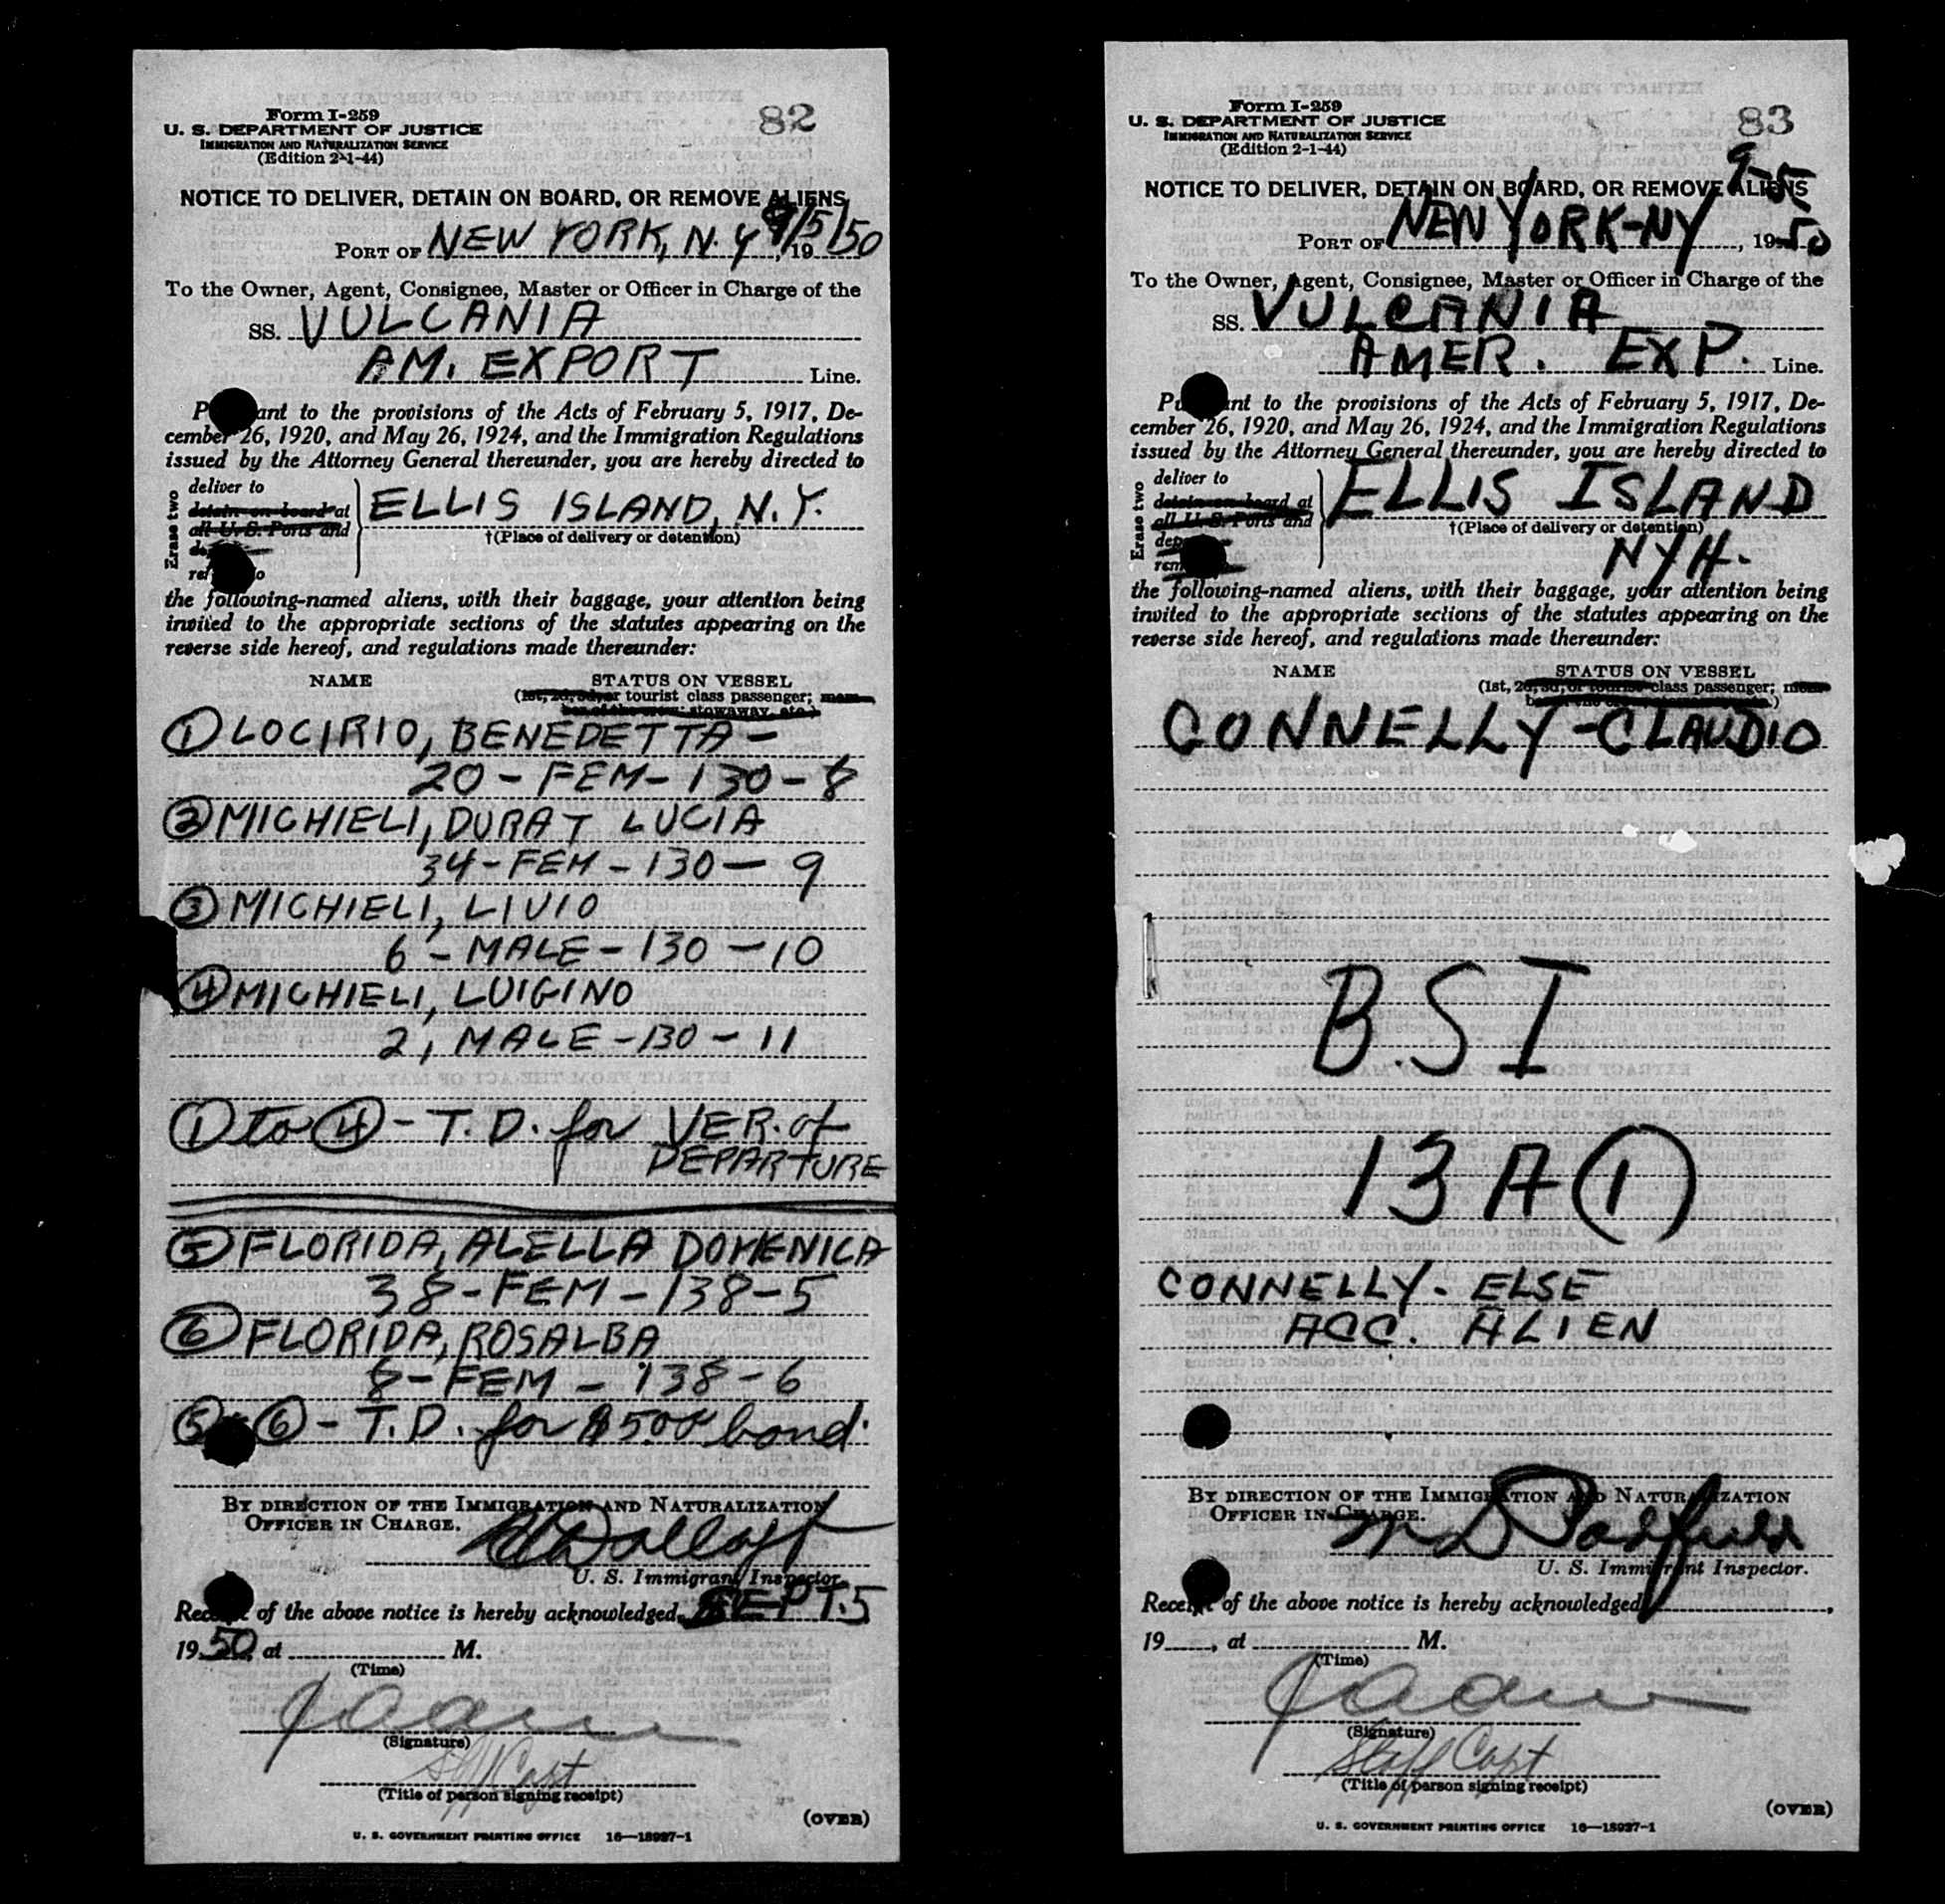 Form I-259
82
U. S. DEPARTMENT OF JUSTICE
IMMIGRATION AND NATURALIZATION SERVICE
(Edition 2-1-44)
NOTICE TO DELIVER, DETAIN ON BOARD, OR REMOVE ALIENS
PORT OF NEW YORK, N.Y. 9/5/50, 19
To the Owner, Agent, Consignee, Master or Officer in Charge of the
SS. VULCANIA
AM. EXPORT Line.
P ant to the provisions of the Acts of February 5, 1917, De-
cember 26, 1920, and May 26, 1924, and the Immigration Regulations
issued by the Attorney General thereunder, you are hereby directed to
Erase two
deliver to
detain on board at
all U. S. Ports and
de
ref o
ELLIS ISLAND, N.Y.
†(Place of delivery or detention)
the following-named aliens, with their baggage, your attention being
invited to the appropriate sections of the statutes appearing on the
reverse side hereof, and regulations made thereunder:
NAME STATUS ON VESSEL
(1st, 2d, 3d, or tourist class passenger; mem-
ber of the crew; stowaway, etc.)
① LOCIRIO, BENEDETTA -
20 - FEM - 130 - 8
② MICHIELI, DURAT LUCIA
34 - FEM - 130 - 9
③ MICHIELI, LIVIO
6 - MALE - 130 - 10
④ MICHIELI, LUIGINO
2, MALE - 130 - 11
① to ④ - T. D. for VER. of
DEPARTURE
⑤ FLORIDA, ALELLA DOMENICA
38 - FEM - 138 - 5
⑥ FLORIDA, ROSALBA
8 - FEM - 138 - 6
⑤ ⑥ - T.D. for $500 bond.
BY DIRECTION OF THE IMMIGRATION AND NATURALIZATION
OFFICER IN CHARGE.
U. S. Immigrant Inspector.
Rece t of the above notice is hereby acknowledged SEPT. 5
19 50, at M.
(Time)
(Signature)
Staff Capt
(Title of person signing receipt)
(OVER)
U. S. GOVERNMENT PRINTING OFFICE 16—18937-1
Form I-259
83
U. S. DEPARTMENT OF JUSTICE
IMMIGRATION AND NATURALIZATION SERVICE
(Edition 2-1-44)
9-5
NOTICE TO DELIVER, DETAIN ON BOARD, OR REMOVE ALIENS
PORT OF NEW YORK-NY, 19 50
To the Owner, Agent, Consignee, Master or Officer in Charge of the
SS. VULCANIA
AMER. EXP. Line.
Pu nt to the provisions of the Acts of February 5, 1917, De-
cember 26, 1920, and May 26, 1924, and the Immigration Regulations
issued by the Attorney General thereunder, you are hereby directed to
Erase two
deliver to
detain on board at
all U. S. Ports and
dep
rem
ELLIS ISLAND
†(Place of delivery or detention)
NYH.
the following-named aliens, with their baggage, your attention being
invited to the appropriate sections of the statutes appearing on the
reverse side hereof, and regulations made thereunder:
NAME STATUS ON VESSEL
(1st, 2d, 3d, or tourist class passenger; mem-
CONNELLY - CLAUDIO
B.S.I
13 A ①
CONNELLY. ELSE
ACC. ALIEN
BY DIRECTION OF THE IMMIGRATION AND NATURALIZATION
OFFICER IN CHARGE.
U. S. Immigrant Inspector.
Recei t of the above notice is hereby acknowledged ,
19 , at M.
(Time)
(Signature)
Staff Capt
(Title of person signing receipt)
(OVER)
U. S. GOVERNMENT PRINTING OFFICE 16—18937-1